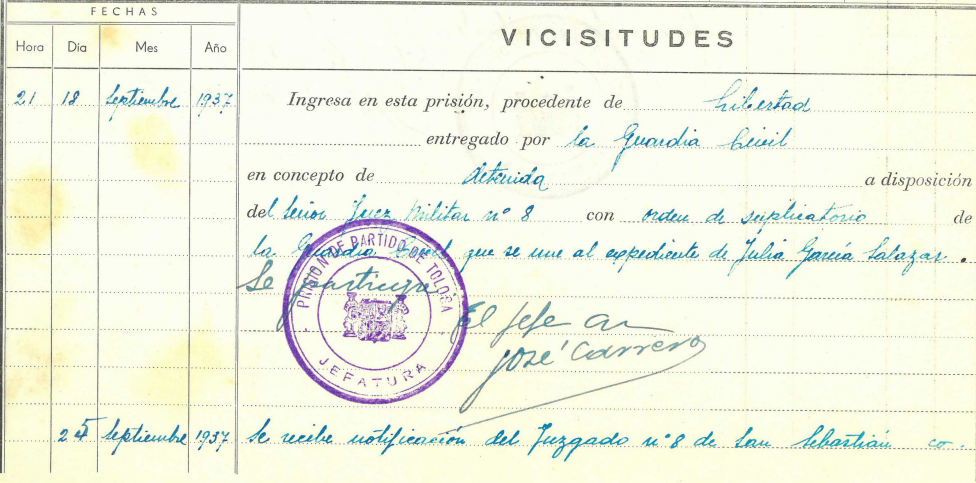 FECHAS
Hora Día Mes Año
VICISITUDES
21 18 Septiembre 1937 Ingresa en esta prisión, procedente de Libertad
entregado por la Guardia Civil
en concepto de detenida a disposición
del Señor Juez Militar nº 8 con orden de suplicatorio de
la Guardia Civil que se une al expediente de Julia García Salazar.
Se participa
El Jefe
José Carrero
PRISION DE PARTIDO DE TOLOSA
JEFATURA
Septiembre 1937 Se recibe notificación del Juzgado nº 8 de San Sebastián co-